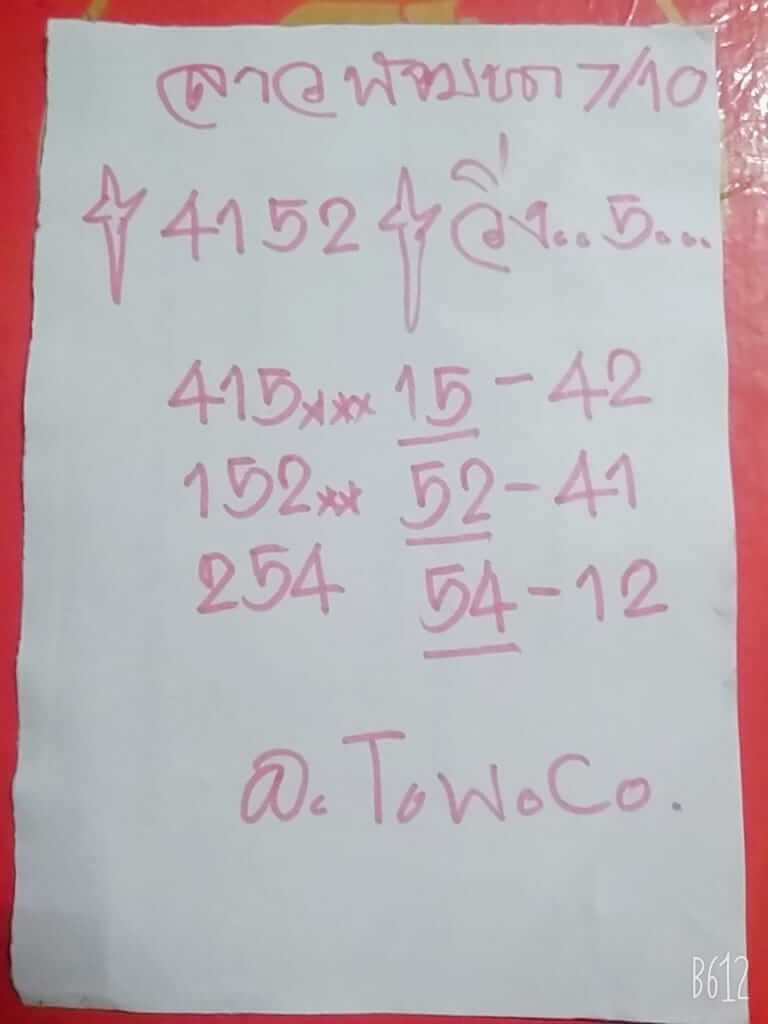 ลาว พัฒนา 7/10
4152 วิ่ง..5...
415xxx 15-42
152xx 52-41
254 54-12
อ.ToWoCo.
B612